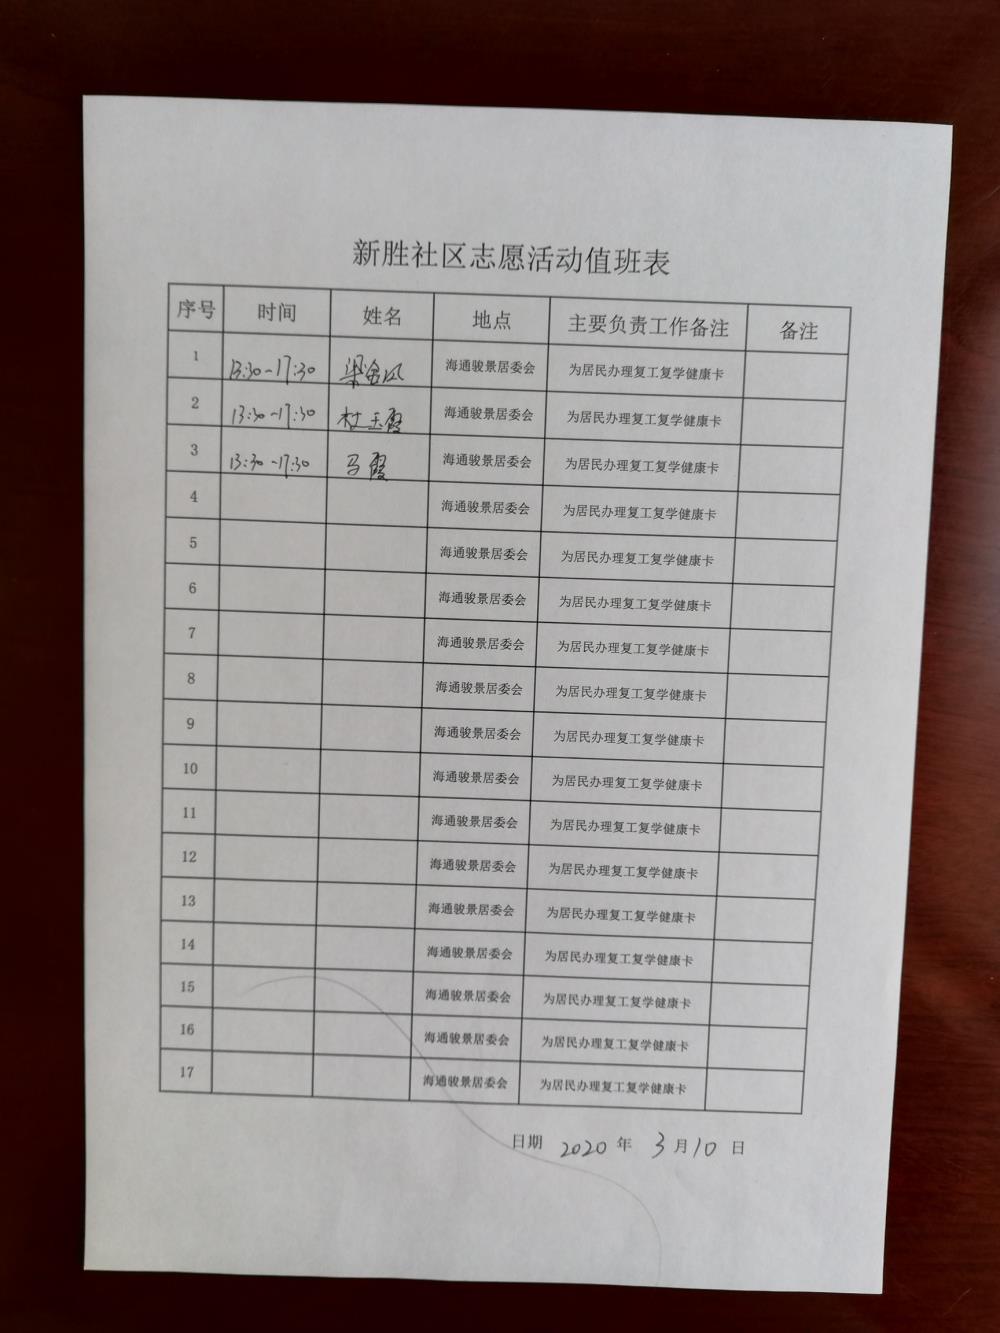 新胜社区志愿活动值班表
序号 时间 姓名 地点 主要负责工作备注 备注
1 13:30-17:30 梁金凤 海通骏景居委会 为居民办理复工复学健康卡
2 13:30-17:30 杜玉霞 海通骏景居委会 为居民办理复工复学健康卡
3 13:30-17:30 马霞 海通骏景居委会 为居民办理复工复学健康卡
4 海通骏景居委会 为居民办理复工复学健康卡
5 海通骏景居委会 为居民办理复工复学健康卡
6 海通骏景居委会 为居民办理复工复学健康卡
7 海通骏景居委会 为居民办理复工复学健康卡
8 海通骏景居委会 为居民办理复工复学健康卡
9 海通骏景居委会 为居民办理复工复学健康卡
10 海通骏景居委会 为居民办理复工复学健康卡
11 海通骏景居委会 为居民办理复工复学健康卡
12 海通骏景居委会 为居民办理复工复学健康卡
13 海通骏景居委会 为居民办理复工复学健康卡
14 海通骏景居委会 为居民办理复工复学健康卡
15 海通骏景居委会 为居民办理复工复学健康卡
16 海通骏景居委会 为居民办理复工复学健康卡
17 海通骏景居委会 为居民办理复工复学健康卡
日期 2020 年 3 月 10 日